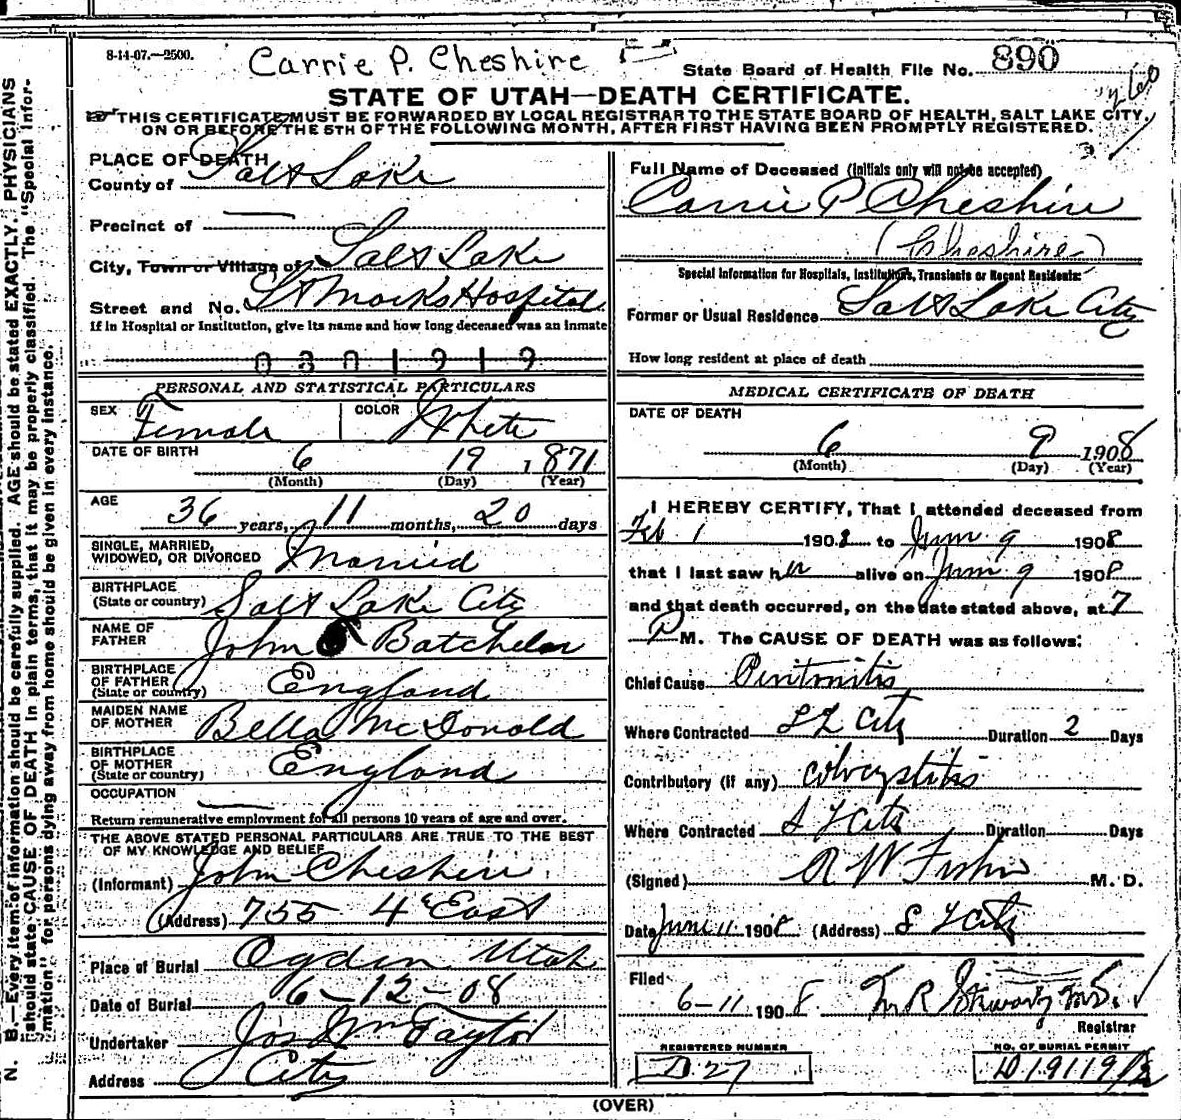 8-14-07.—2500.
Carrie P. Cheshire
State Board of Health File No. 890
260
STATE OF UTAH—DEATH CERTIFICATE.
THIS CERTIFICATE MUST BE FORWARDED BY LOCAL REGISTRAR TO THE STATE BOARD OF HEALTH, SALT LAKE CITY,
ON OR BEFORE THE 5TH OF THE FOLLOWING MONTH, AFTER FIRST HAVING BEEN PROMPTLY REGISTERED.
PLACE OF DEATH
County of Salt Lake
Precinct of —
City, Town or Village of Salt Lake
Street and No. St Mark's Hospital
If in Hospital or Institution, give its name and how long deceased was an inmate
0301919
PERSONAL AND STATISTICAL PARTICULARS
SEX Female COLOR White
DATE OF BIRTH 6 19 1871
(Month) (Day) (Year)
AGE 36 years, 11 months, 20 days
SINGLE, MARRIED,
WIDOWED, OR DIVORCED Married
BIRTHPLACE
(State or country) Salt Lake City
NAME OF
FATHER John Batchelor
BIRTHPLACE
OF FATHER
(State or country) England
MAIDEN NAME
OF MOTHER Bella McDonald
BIRTHPLACE
OF MOTHER
(State or country) England
OCCUPATION —
Return remunerative employment for all persons 10 years of age and over.
THE ABOVE STATED PERSONAL PARTICULARS ARE TRUE TO THE BEST
OF MY KNOWLEDGE AND BELIEF
(Informant) John Cheshire
(Address) 755 4th East
Place of Burial Ogden Utah
Date of Burial 6-12-08
Undertaker Jos Wm Taylor
Address City
Full Name of Deceased (Initials only will not be accepted)
Carrie P Cheshire
(Cheshire)
Special Information for Hospitals, Institutions, Transients or Recent Residents:
Former or Usual Residence Salt Lake City
How long resident at place of death
MEDICAL CERTIFICATE OF DEATH
DATE OF DEATH
6 9 1908
(Month) (Day) (Year)
I HEREBY CERTIFY, That I attended deceased from
Feb 1 1908 to June 9 1908
that I last saw her alive on June 9 1908
and that death occurred, on the date stated above, at 7
P M. The CAUSE OF DEATH was as follows:
Chief Cause Peritonitis
Where Contracted S L City Duration 2 Days
Contributory (if any)
Where Contracted S L City Duration Days
(Signed) R W Fisher M. D.
Date June 11 1908 (Address) S L City
Filed
6-11 1908 M.D.
Registrar
REGISTERED NUMBER
D 27
NO. OF BURIAL PERMIT
D 19119
(OVER)
N. B.—Every item of information should be carefully supplied. AGE should be stated EXACTLY. PHYSICIANS
should state CAUSE OF DEATH in plain terms, that it may be properly classified. The "Special Infor-
mation" for persons dying away from home should be given in every instance.